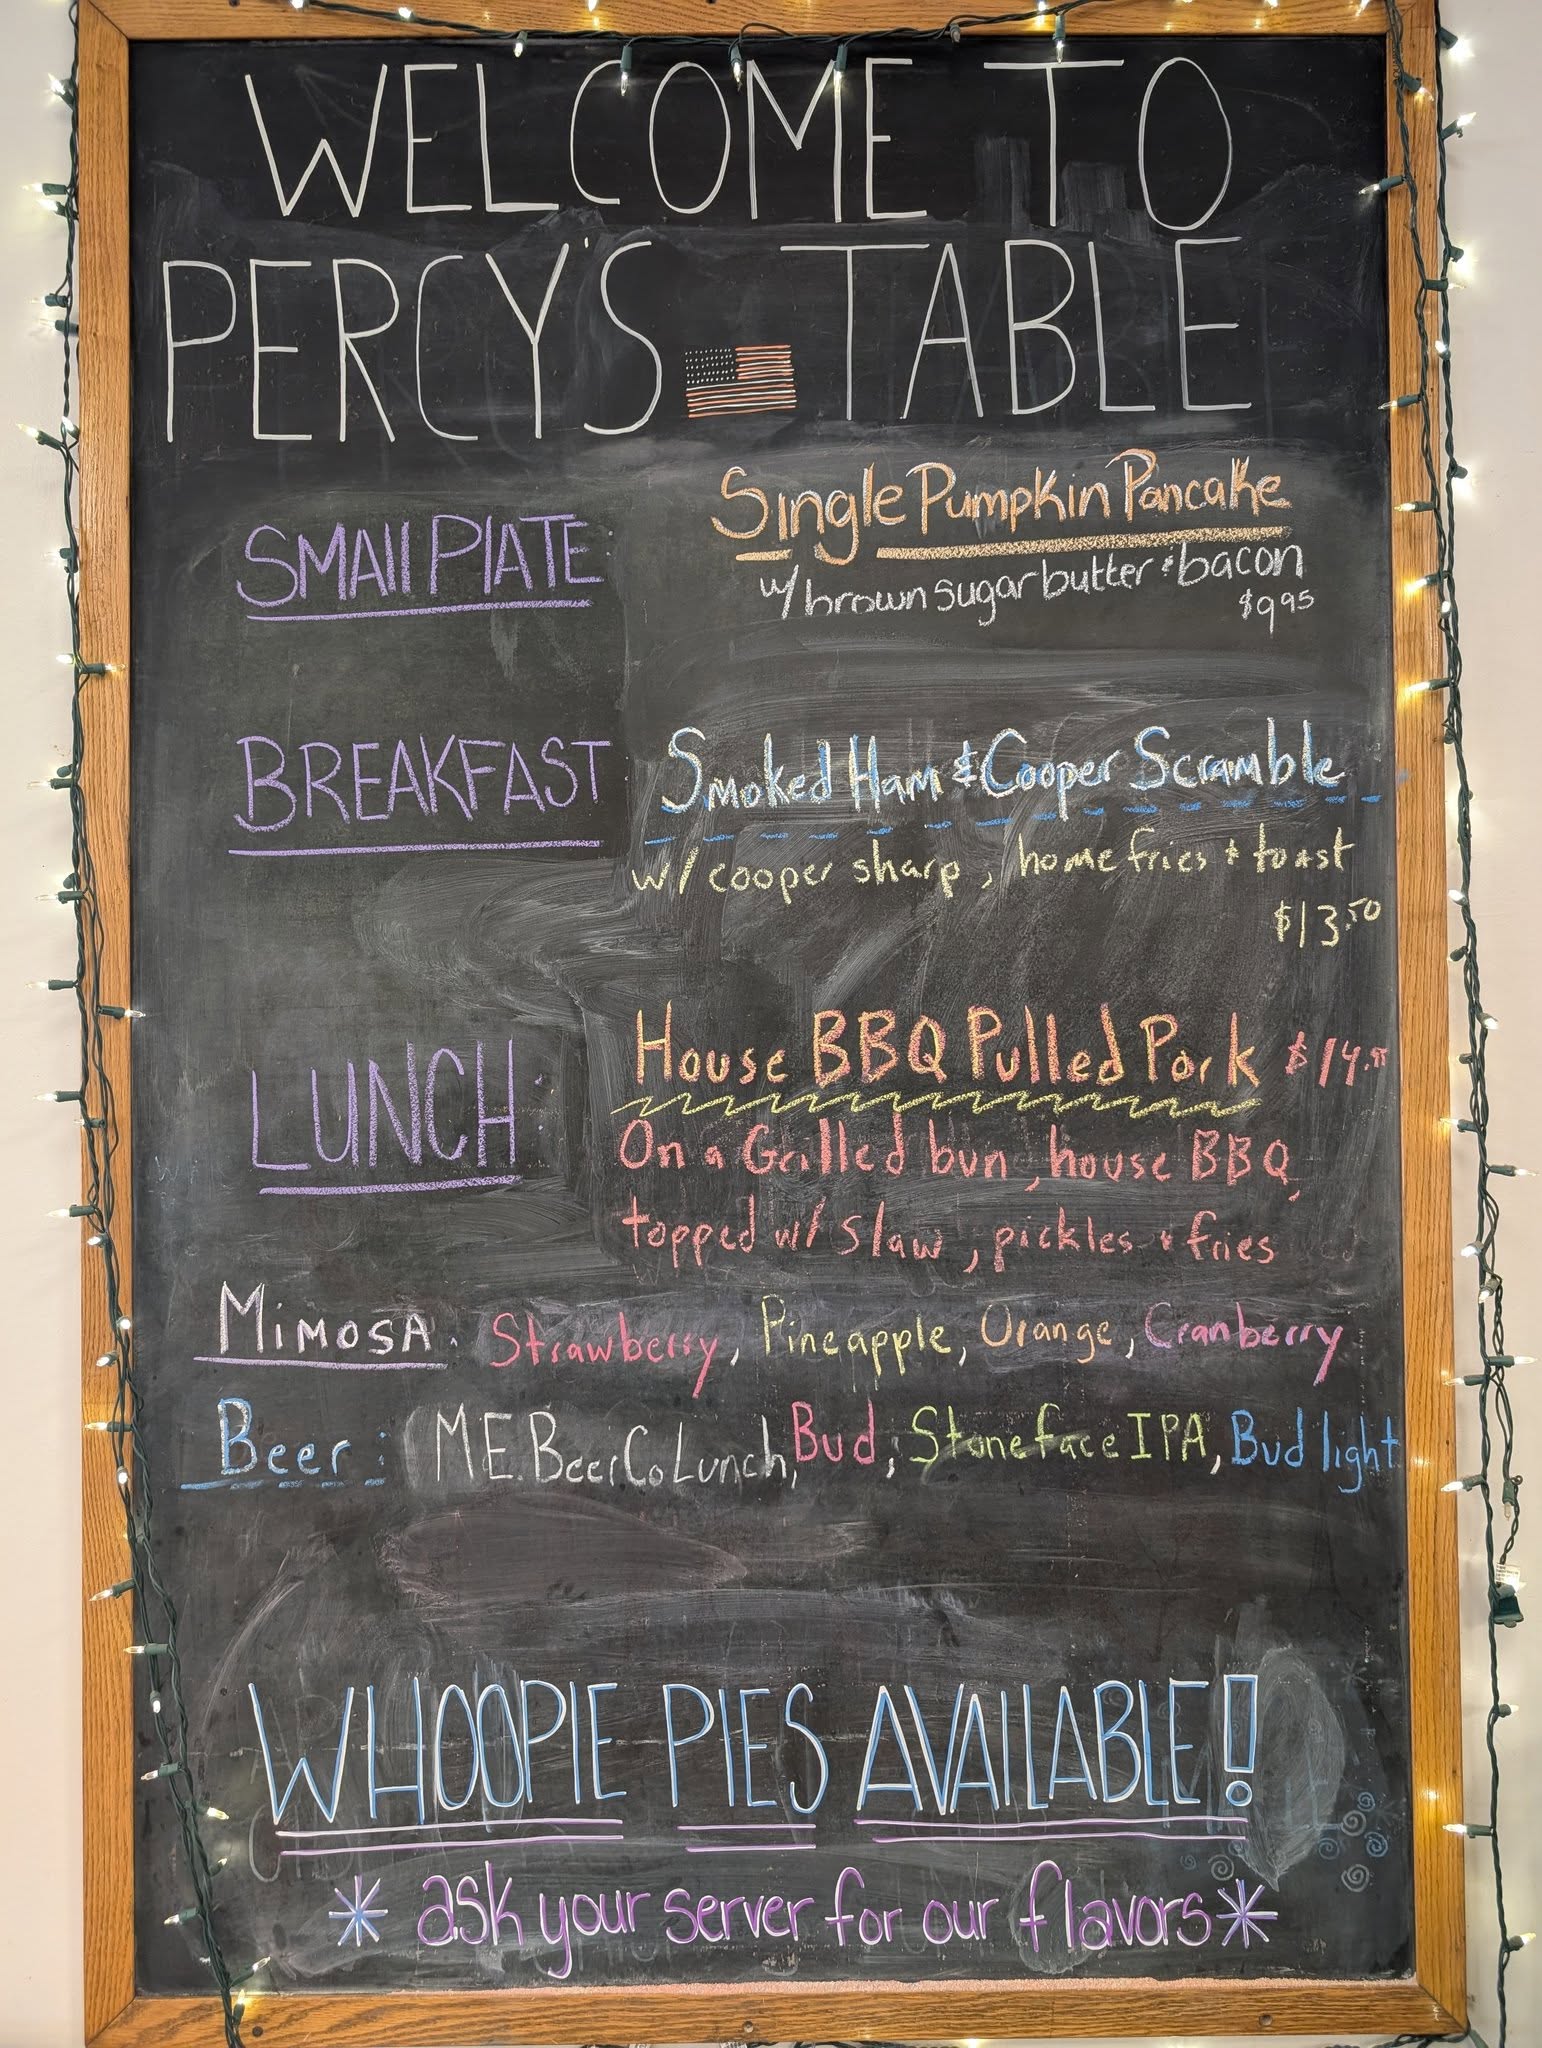 WELCOME TO
PERCY'S TABLE
SMALL PLATE:
Single Pumpkin Pancake
w/ brown sugar butter & bacon
$9.95
BREAKFAST:
Smoked Ham & Cooper Scramble
w/ cooper sharp, home fries & toast
$13.50
LUNCH:
House BBQ Pulled Pork $14.95
On a Grilled bun, house BBQ,
topped w/ slaw, pickles & fries
MIMOSA: Strawberry, Pineapple, Orange, Cranberry
Beer: M.E. Beer Co Lunch, Bud, Stoneface IPA, Bud light
WHOOPIE PIES AVAILABLE!
* ask your server for our flavors *